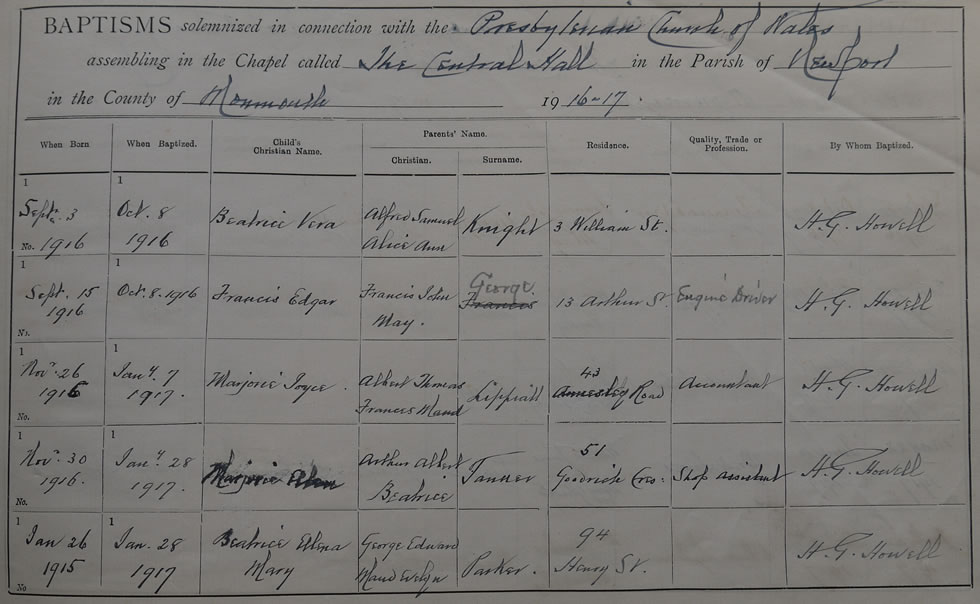 BAPTISMS solemnized in connection with the Presbyterian Church of Wales
assembling in the Chapel called The Central Hall in the Parish of Newport
in the County of Monmouth 1916-17.
When Born When Baptized. Child's Christian Name. Parents' Name. Christian. Surname. Residence. Quality, Trade or Profession. By Whom Baptized.
1 1
Sept. 3 Oct. 8 Beatrice Vera Alfred Samuel Knight 3 William St. H. G. Howell
No. 1916 1916 Alice Ann
1 1
Sept. 15 Oct. 8. 1916 Francis Edgar Francis John George Francis 13 Arthur St. Engine Driver H. G. Howell
1916 May.
No.
1 1
Nov. 26 Jany. 7 Marjorie Joyce. Albert Thomas Lippiatt 43 Annesley Road Accountant H. G. Howell
1916 1917. Frances Maud
No.
1 1
Nov. 30 Jany. 28 Marjorie Arthur Albert Tanner 51 Goodrich Cres: Shop assistant H. G. Howell
1916. 1917. Beatrice
No.
1 1
Jan 26 Jan. 28 Beatrice Elena George Edward Parker. 94 Henry St. H. G. Howell
1915 1917 Mary Maud Evelyn
No